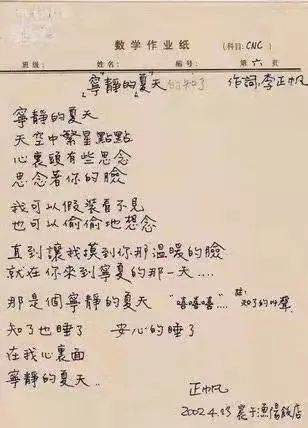 数学作业纸
(科目: CNC)
班级: 姓名: 编号: 第六页
「寧靜的夏」天 的知了 作詞:李正帆
寧靜的夏天
天空中繁星點點
心裏頭有些思念
思念著你的臉
我可以假裝看不見
也可以偷偷地想念
直到讓我摸到你那溫暖的臉
就在你來到寧夏的那一天....
那是個寧靜的夏天 "嘻嘻嘻..." 註:知了的叫聲
知了也睡了 安心的睡了
在我心裏面
寧靜的夏天..
正帆
2002.4.13 寫于漁陽飯店